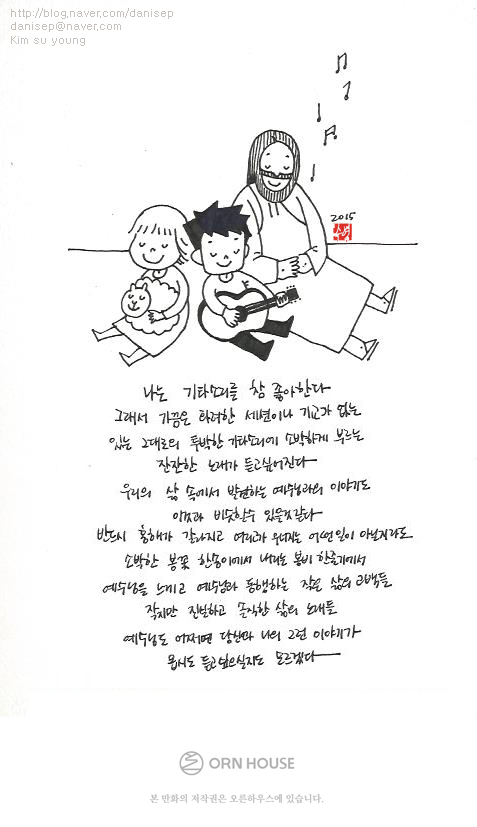 http://blog.naver.com/danisep
danisep@naver.com
Kim su young
2015
나는 기타소리를 참 좋아한다
그래서 가끔은 화려한 세션이나 기교가 없는
있는 그대로의 투박한 기타소리에 소박하게 부르는
잔잔한 노래가 듣고싶어진다
우리의 삶 속에서 발견하는 예수님과의 이야기도
이것과 비슷할수 있을것같다
반드시 홍해가 갈라지고 여리고가 무너지는 어떤일이 아닐지라도
소박한 봄꽃 한송이에서 내리는 봄비 한줄기에서
예수님을 느끼고 예수님과 동행하는 작은 삶의 고백들
작지만 진실하고 솔직한 삶의 노래들
예수님도 어쩌면 당신과 나의 그런 이야기가
몹시도 듣고싶으실지도 모르겠다
ORN HOUSE
본 만화의 저작권은 오른하우스에 있습니다.